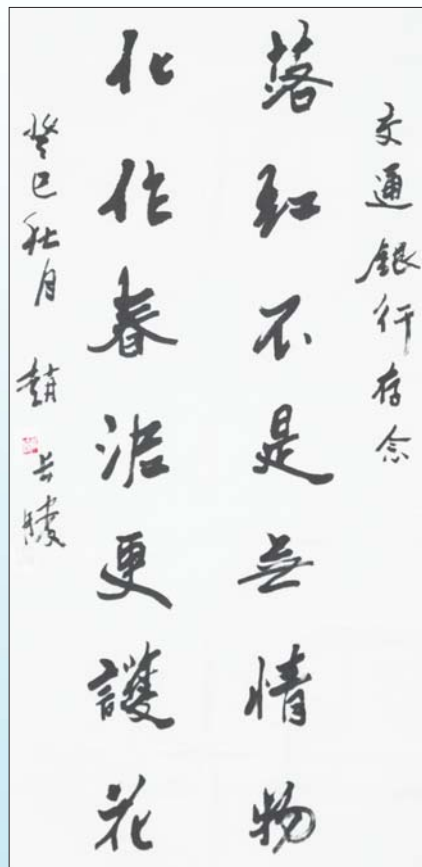 交通銀行存念
落紅不是無情物
化作春泥更護花
癸巳秋月 趙